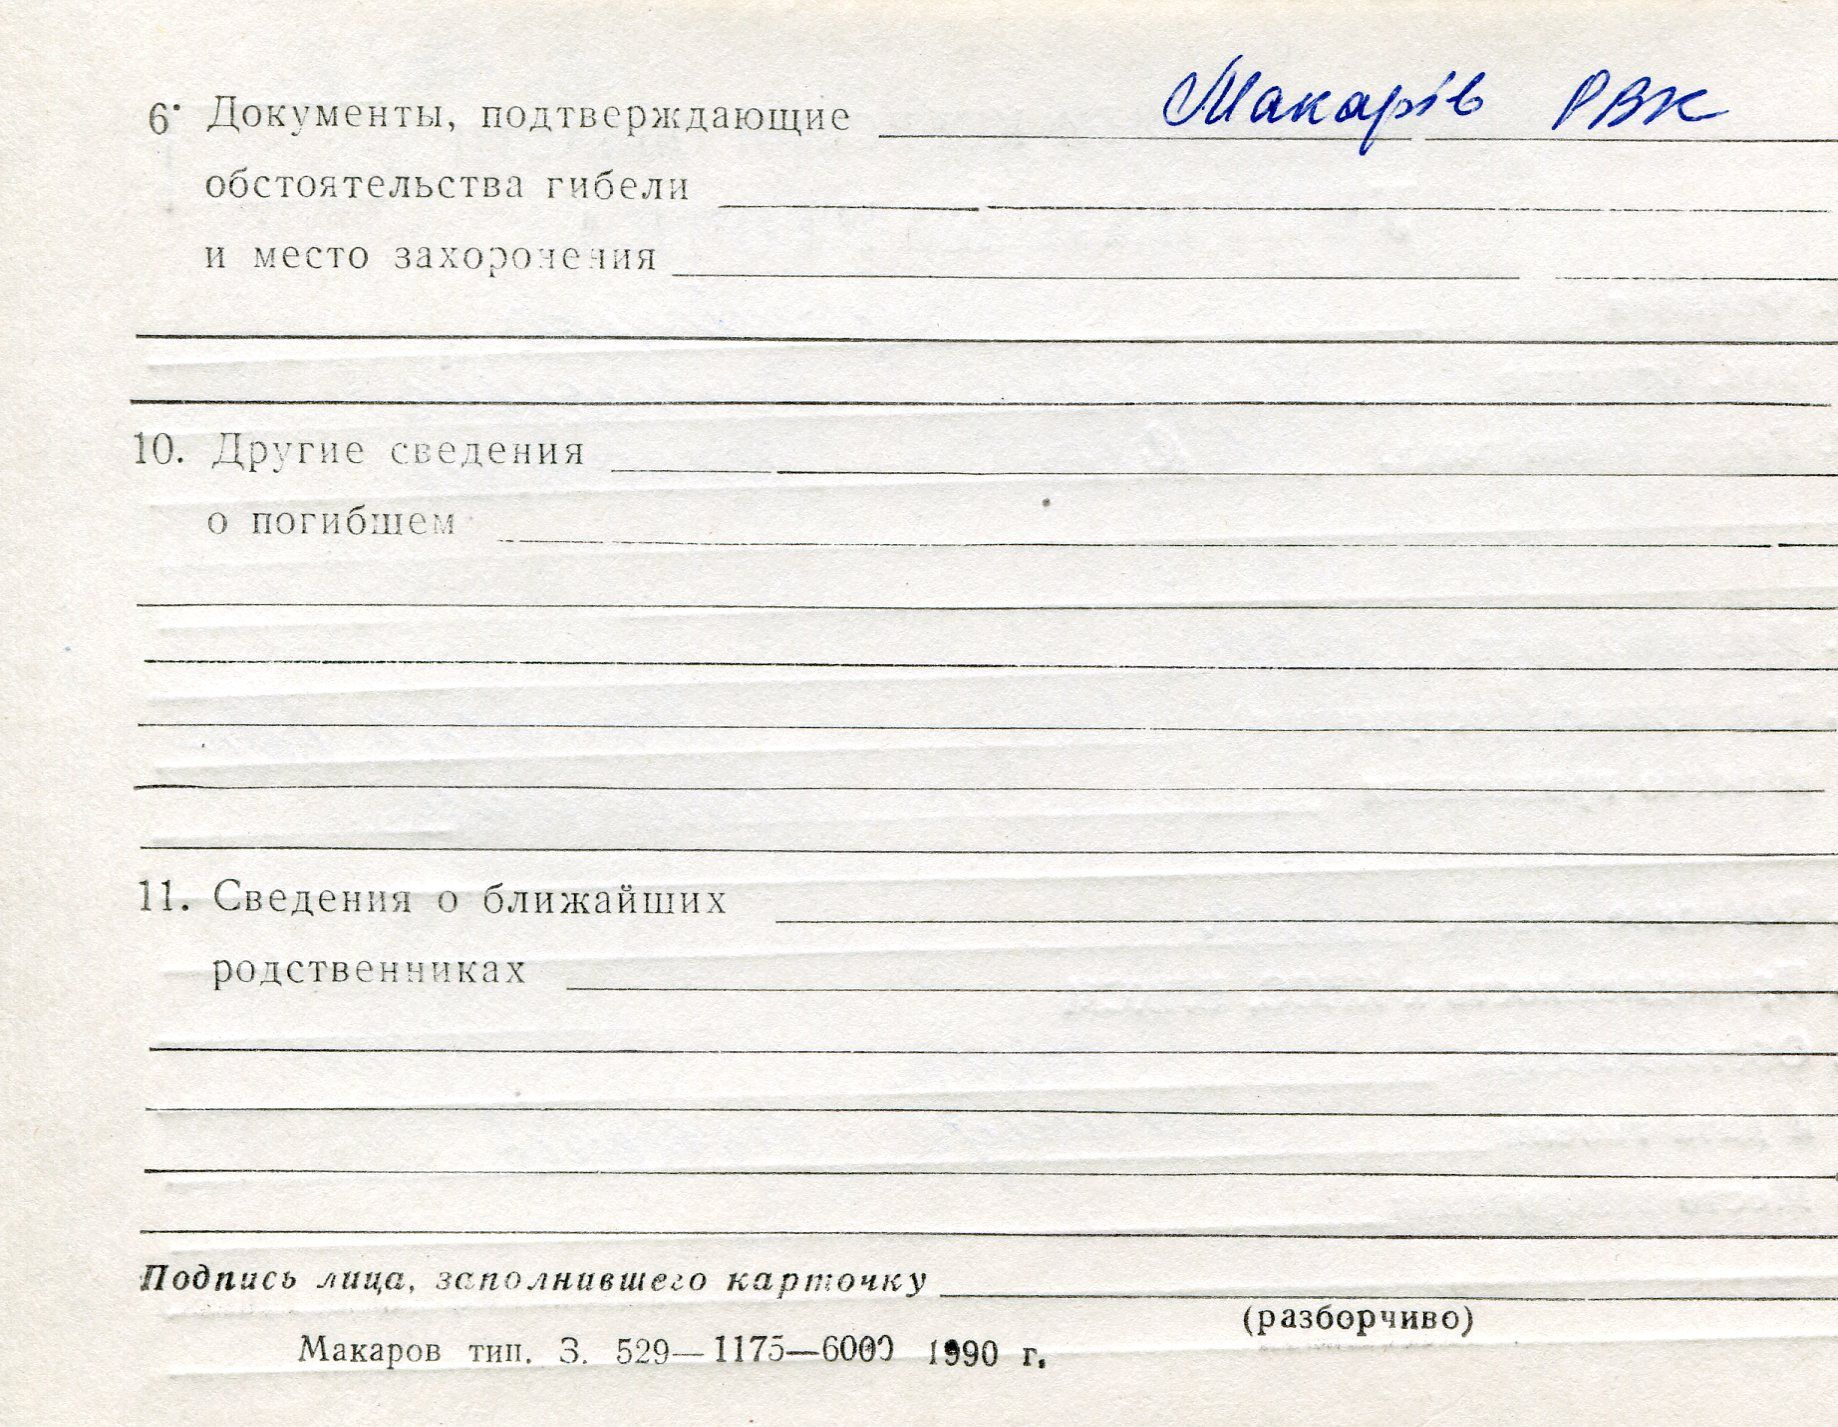 6. Документы, подтверждающие Макарів РВК
обстоятельства гибели
и место захоронения
10. Другие сведения
о погибшем
11. Сведения о ближайших
родственниках
Подпись лица, заполнившего карточку
(разборчиво)
Макаров тип. З. 529—1175—6000 1990 г.